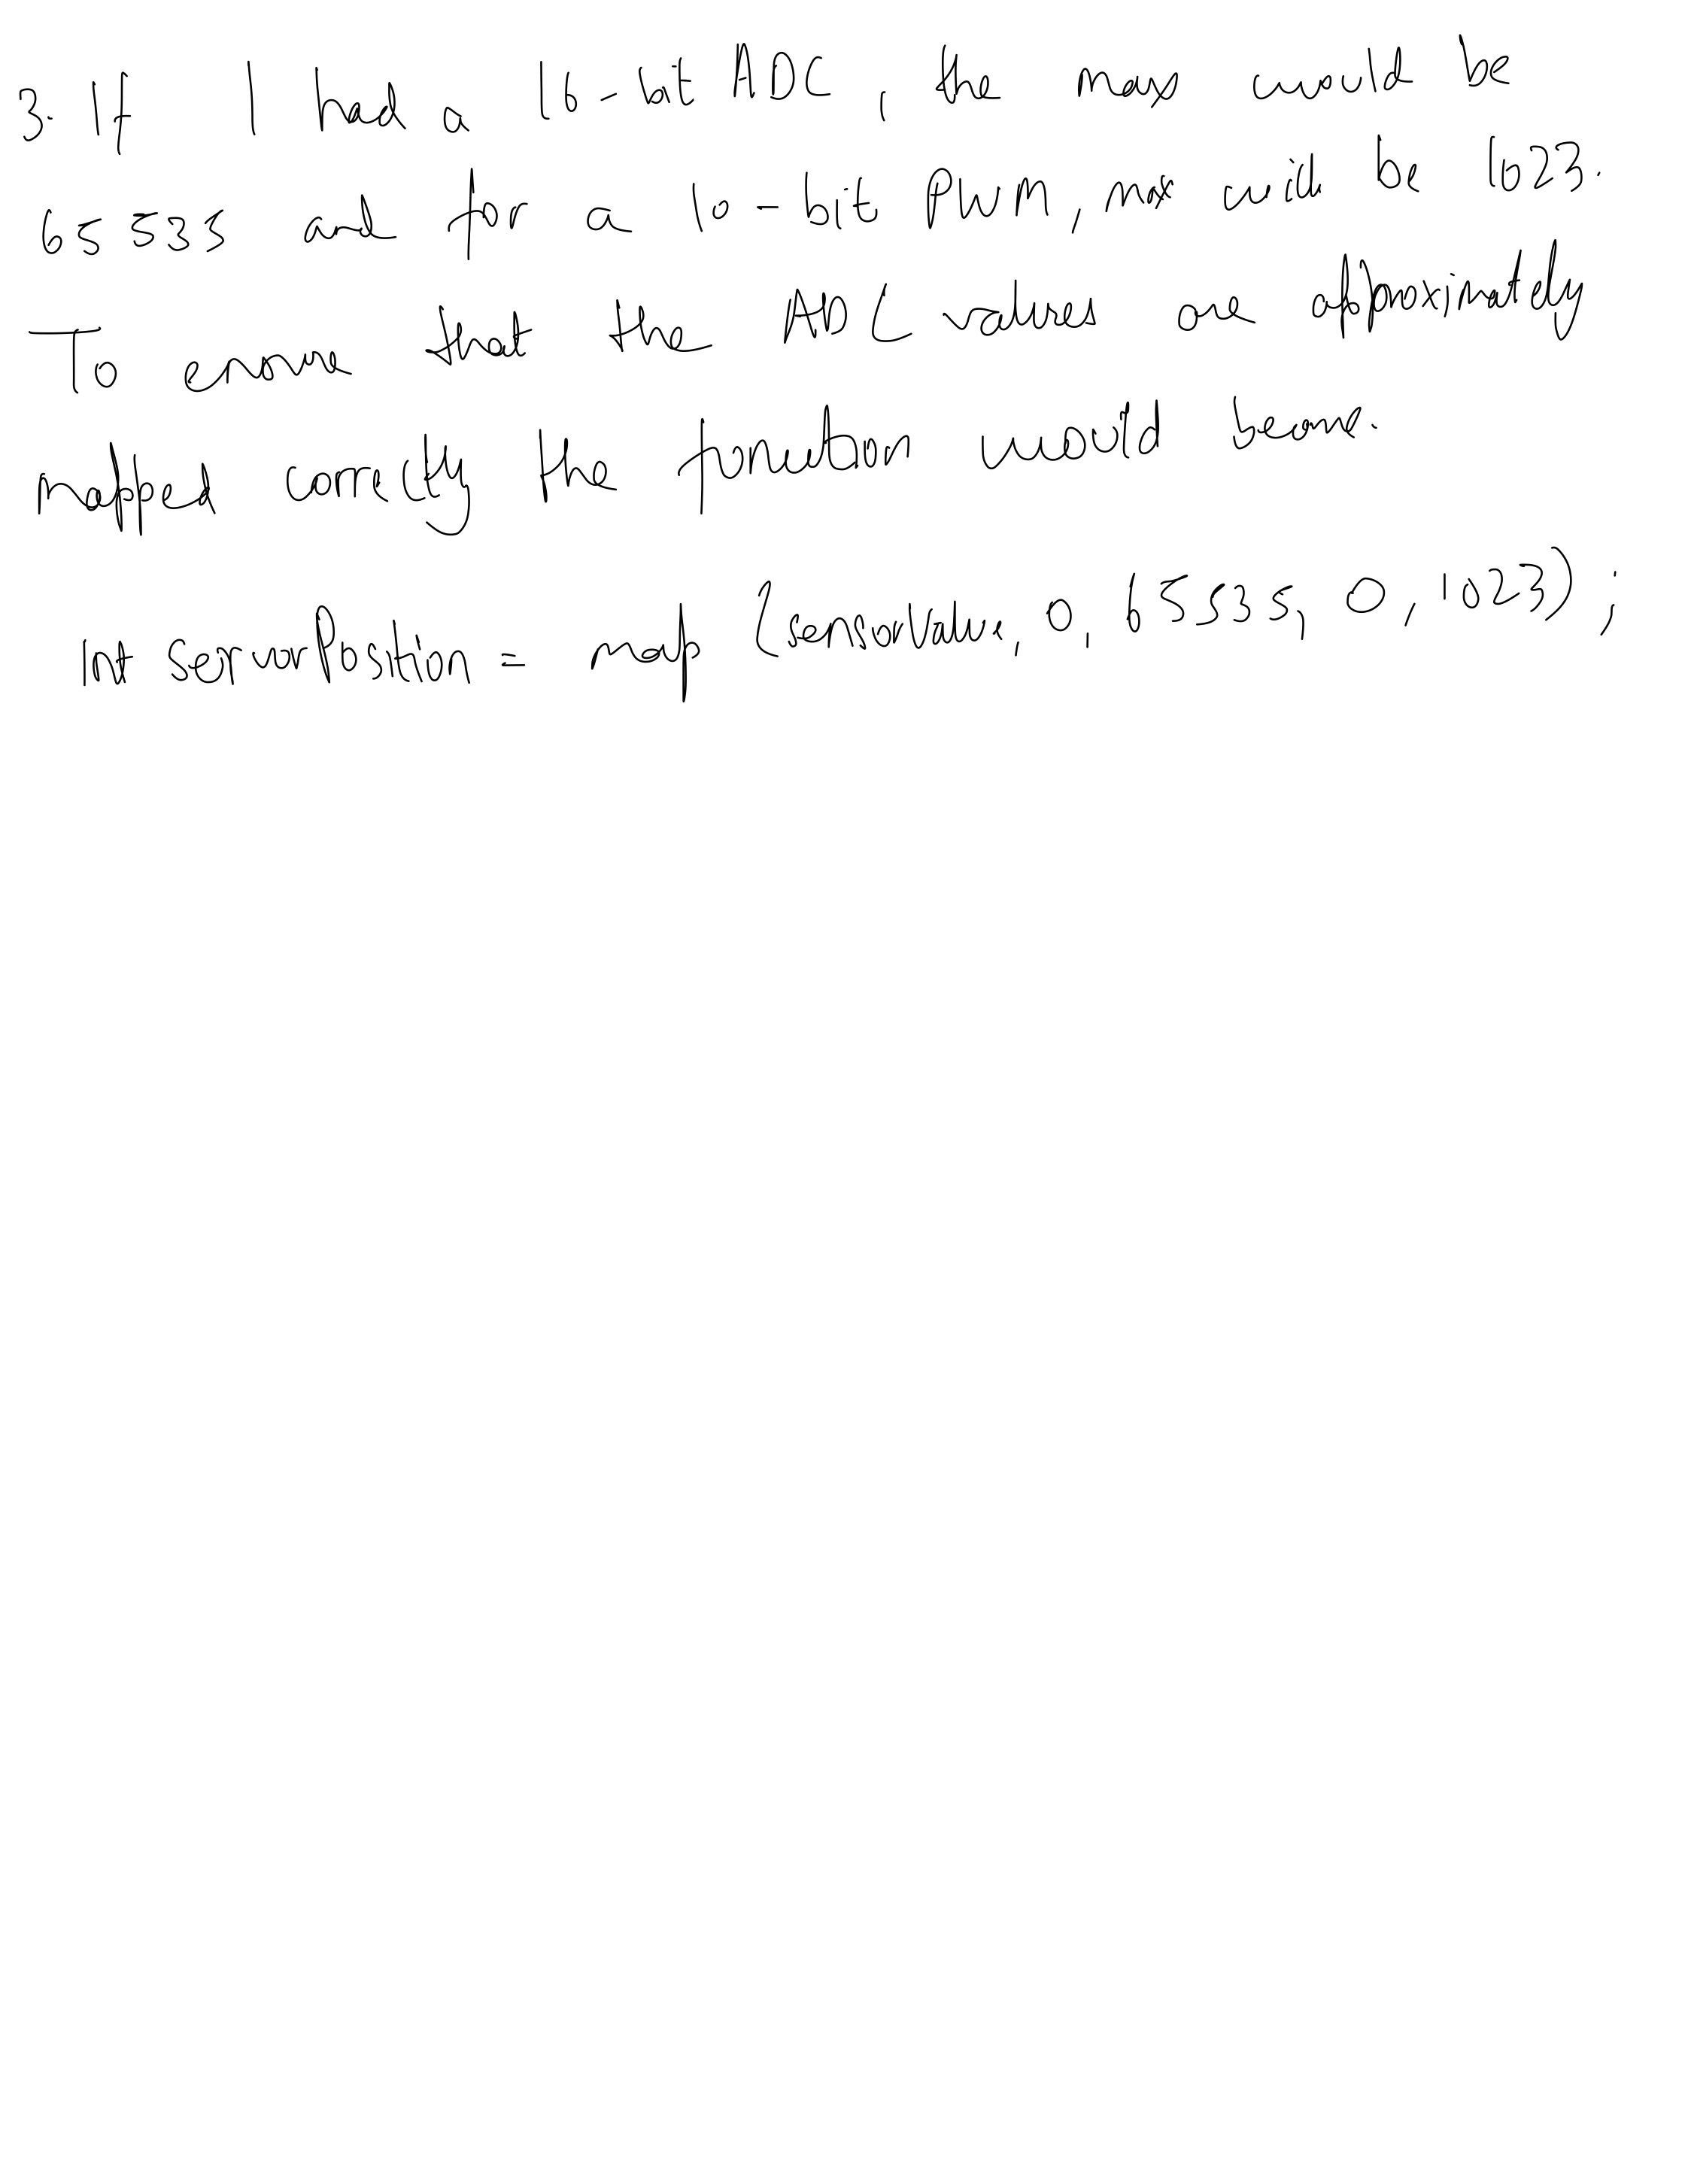 3. If I had a 16-bit ADC, the max would be
65535 and for a 10-bit PWM, max will be 1023.
To ensure that the ADC values are approximately
mapped correctly the function would become.
int servoPosition = map (sensorValue, 0, 65535, 0, 1023);